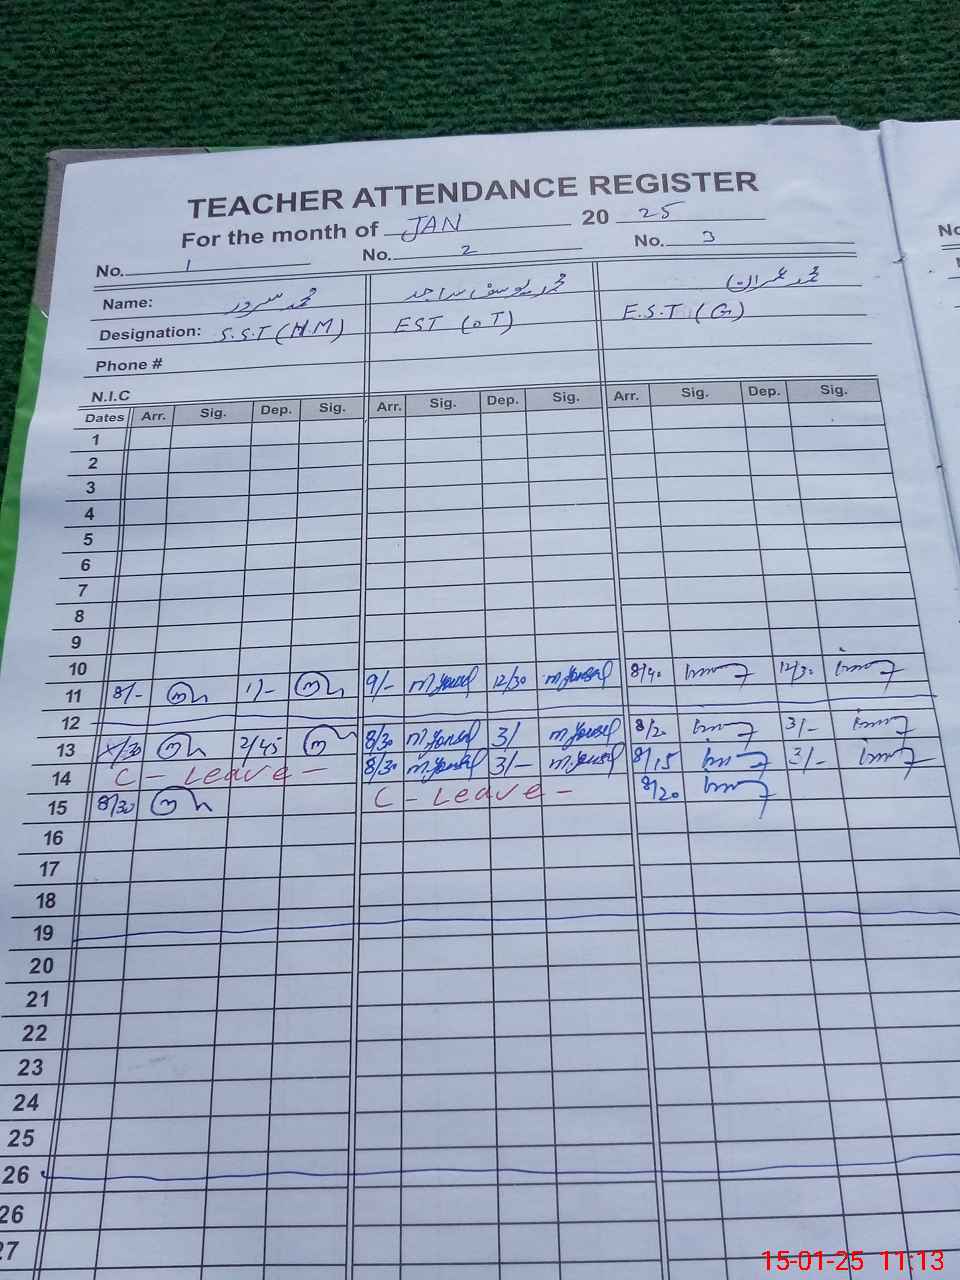 TEACHER ATTENDANCE REGISTER
For the month of JAN 20 25
No. 1 No. 2 No. 3
Name: محمد سرور محمد یوسف ساجد محمد عمران
Designation: S.S.T (H.M) EST (OT) E.S.T (G)
Phone #
N.I.C
Dates Arr. Sig. Dep. Sig. Arr. Sig. Dep. Sig. Arr. Sig. Dep. Sig.
1
2
3
4
5
6
7
8
9
10
11 8/- 1/- 9/- M.Yousaf 12/30 M.Yousaf 8/40 12/30
12
13 8/30 2/45 8/30 M.Yousaf 3/ M.Yousaf 8/20 3/-
14 C - Leave - 8/30 M.Yousaf 3/- M.Yousaf 8/15 3/-
15 8/30 C - Leave - 8/20
16
17
18
19
20
21
22
23
24
25
26
26
27
15-01-25 11:13
No